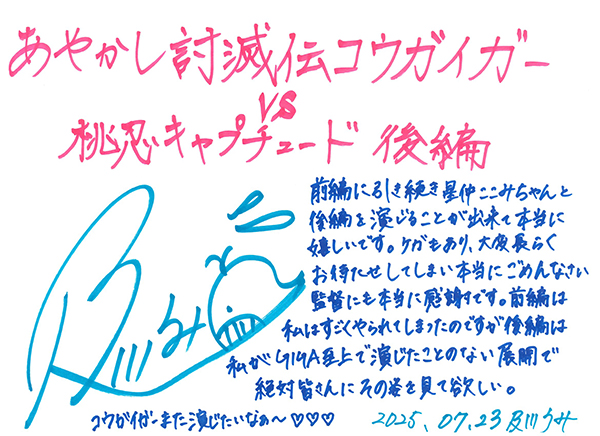 あやかし討滅伝コウガイガー
VS
桃忍キャプチュード 後編
前編に引き続き星仲ここみちゃんと
後編を演じることが出来て本当に
嬉しいです。ケガもあり、大変長らく
お待たせしてしまい本当にごめんなさい
監督にも本当に感謝です。前編は
私はすごくやられてしまったのですが後編は
私がGIGA至上で演じたことのない展開で
絶対皆さんにその姿を見て欲しい。
コウガイガーまた演じたいなぁ〜♡♡♡
2025.07.23 及川うみ